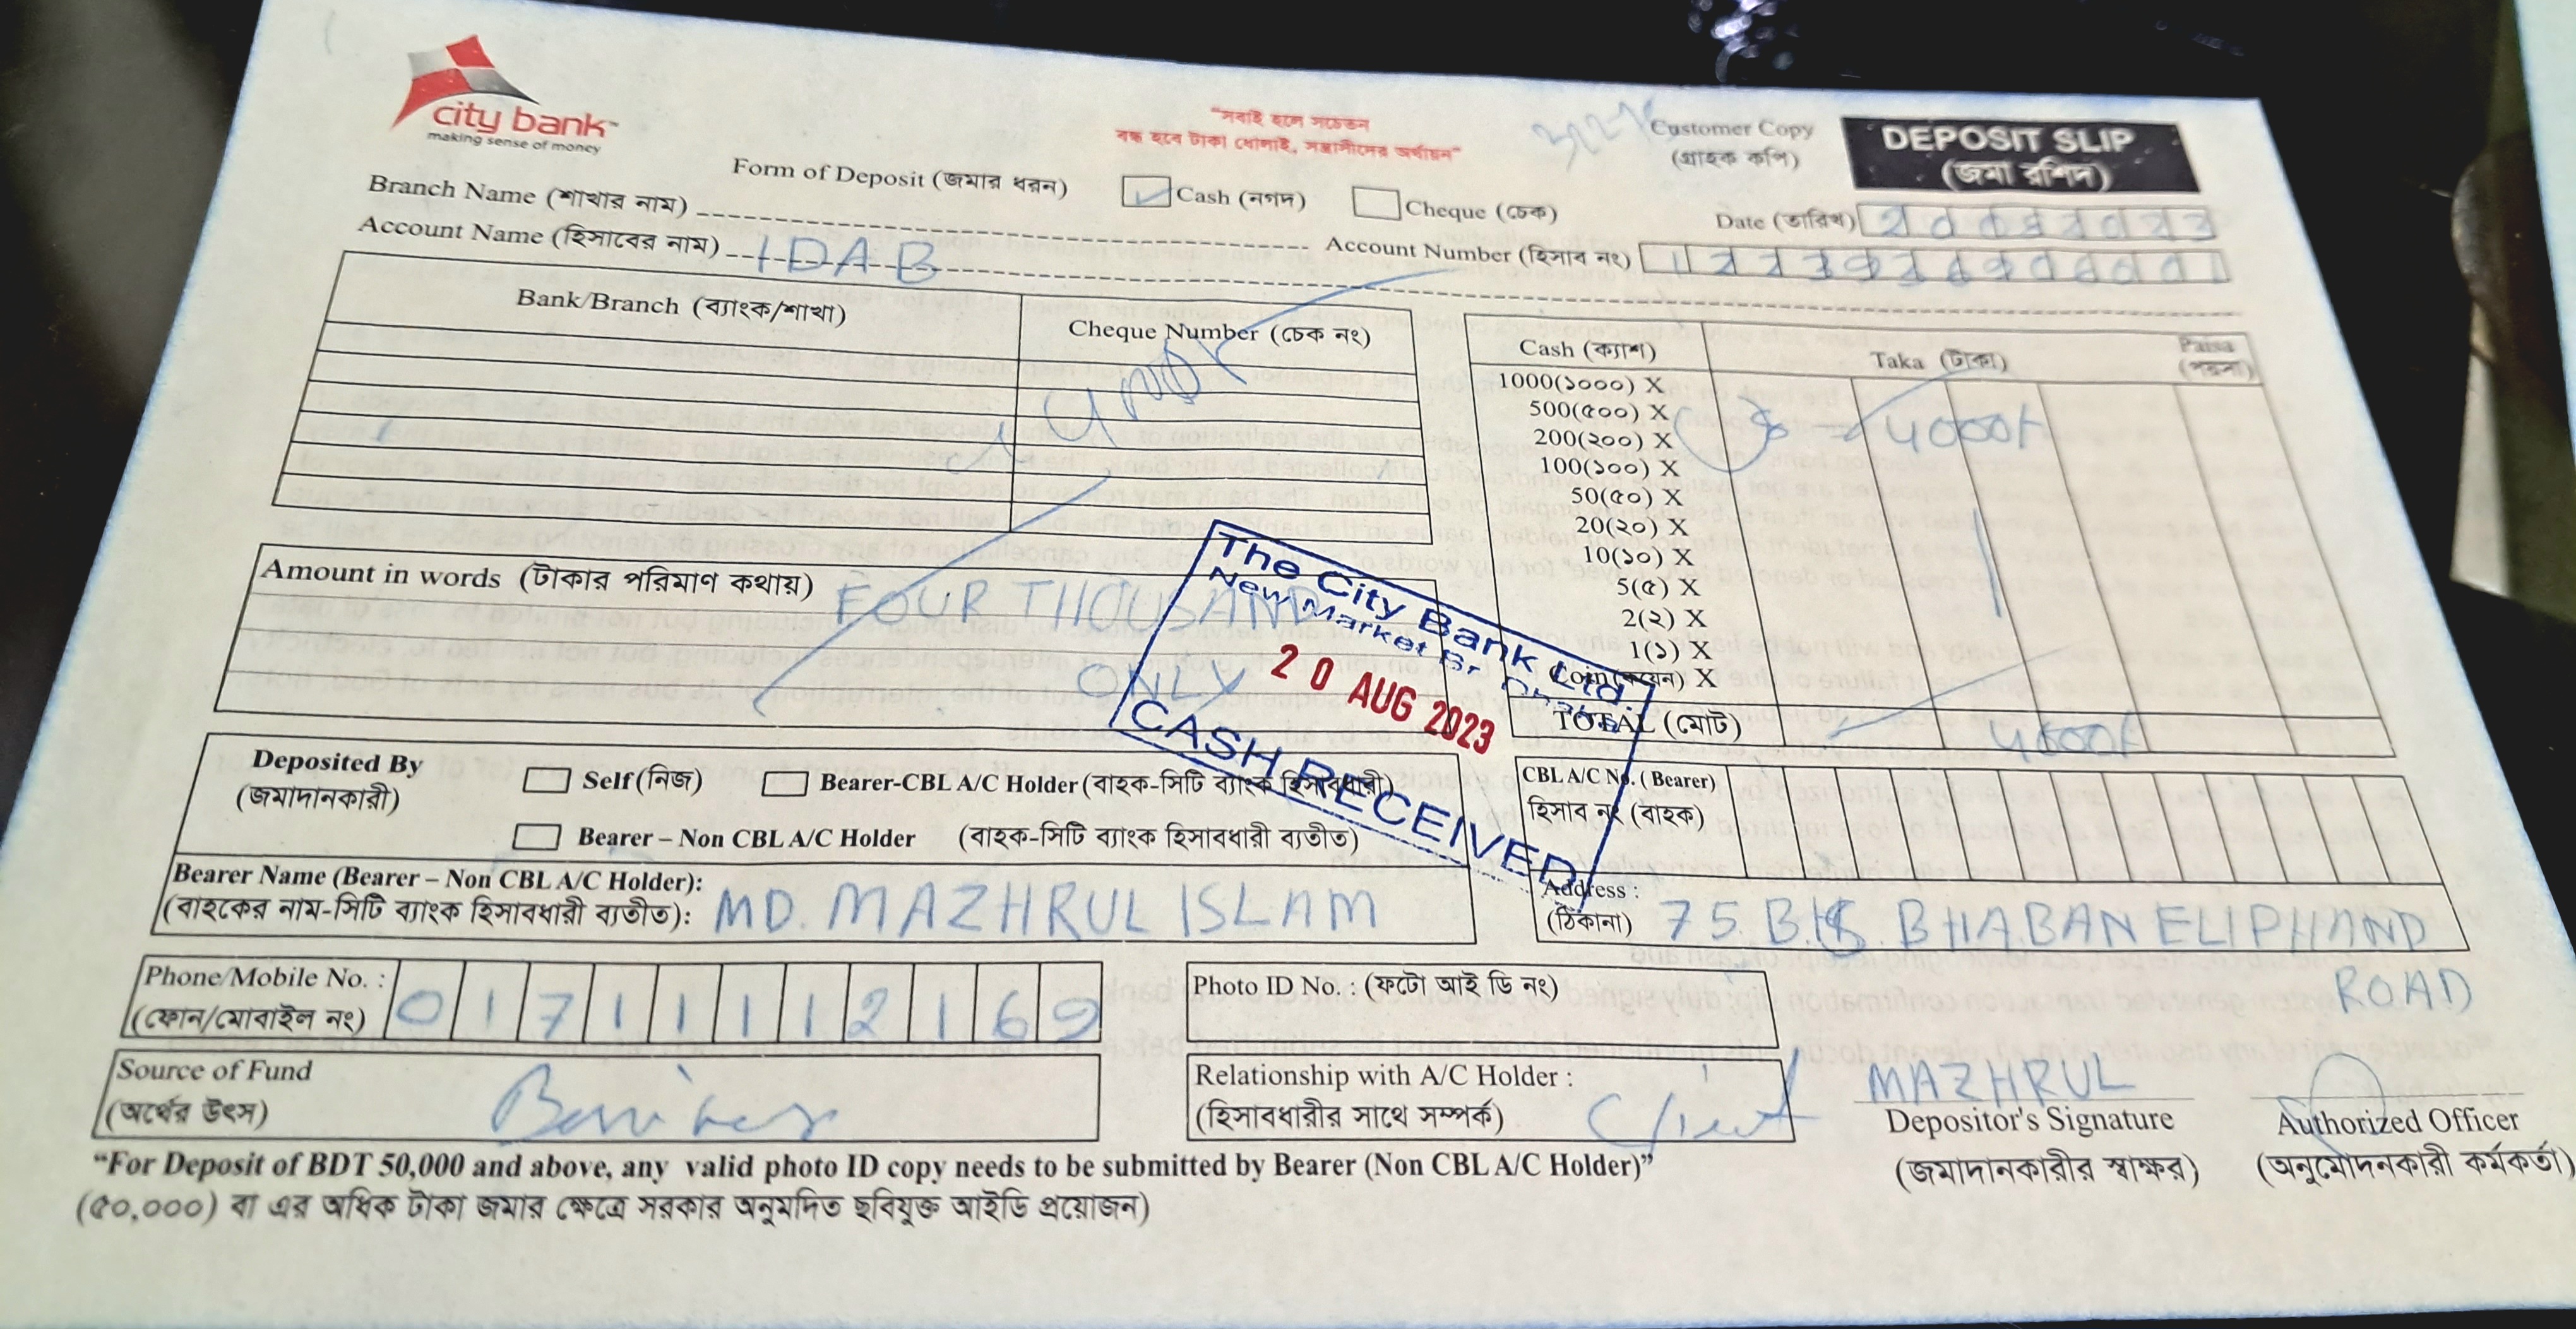 city bank
making sense of money
"সবাই হলে সচেতন
বন্ধ হবে টাকা ধোলাই, সন্ত্রাসীদের অর্থায়ন"
Customer Copy
(গ্রাহক কপি)
DEPOSIT SLIP
(জমা রশিদ)
Form of Deposit (জমার ধরন) Cash (নগদ) Cheque (চেক)
Branch Name (শাখার নাম)
Date (তারিখ) 20082023
Account Name (হিসাবের নাম) IDAB
Account Number (হিসাব নং)
Bank/Branch (ব্যাংক/শাখা) Cheque Number (চেক নং)
Cash (ক্যাশ) Taka (টাকা) Paisa (পয়সা)
1000(১০০০) X
500(৫০০) X
200(২০০) X 4000/-
100(১০০) X
50(৫০) X
20(২০) X
10(১০) X
5(৫) X
2(২) X
1(১) X
Coin(কয়েন) X
TOTAL (মোট) 4000/-
Amount in words (টাকার পরিমাণ কথায়) FOUR THOUSAND
ONLY
The City Bank Ltd.
New Market Br Dhaka
20 AUG 2023
CASH RECEIVED
Deposited By
(জমাদানকারী)
Self (নিজ) Bearer-CBL A/C Holder (বাহক-সিটি ব্যাংক হিসাবধারী)
Bearer – Non CBL A/C Holder (বাহক-সিটি ব্যাংক হিসাবধারী ব্যতীত)
CBL A/C No. (Bearer)
হিসাব নং (বাহক)
Bearer Name (Bearer – Non CBL A/C Holder):
(বাহকের নাম-সিটি ব্যাংক হিসাবধারী ব্যতীত): MD. MAZHRUL ISLAM
Address :
(ঠিকানা) 75. BHABAN ELIPHAND
ROAD
Phone/Mobile No. :
(ফোন/মোবাইল নং) 01711112169
Photo ID No. : (ফটো আই ডি নং)
Source of Fund
(অর্থের উৎস)
Relationship with A/C Holder :
(হিসাবধারীর সাথে সম্পর্ক) Client
MAZHRUL
Depositor's Signature
(জমাদানকারীর স্বাক্ষর)
Authorized Officer
(অনুমোদনকারী কর্মকর্তা)
"For Deposit of BDT 50,000 and above, any valid photo ID copy needs to be submitted by Bearer (Non CBL A/C Holder)"
(৫০,০০০) বা এর অধিক টাকা জমার ক্ষেত্রে সরকার অনুমদিত ছবিযুক্ত আইডি প্রয়োজন)